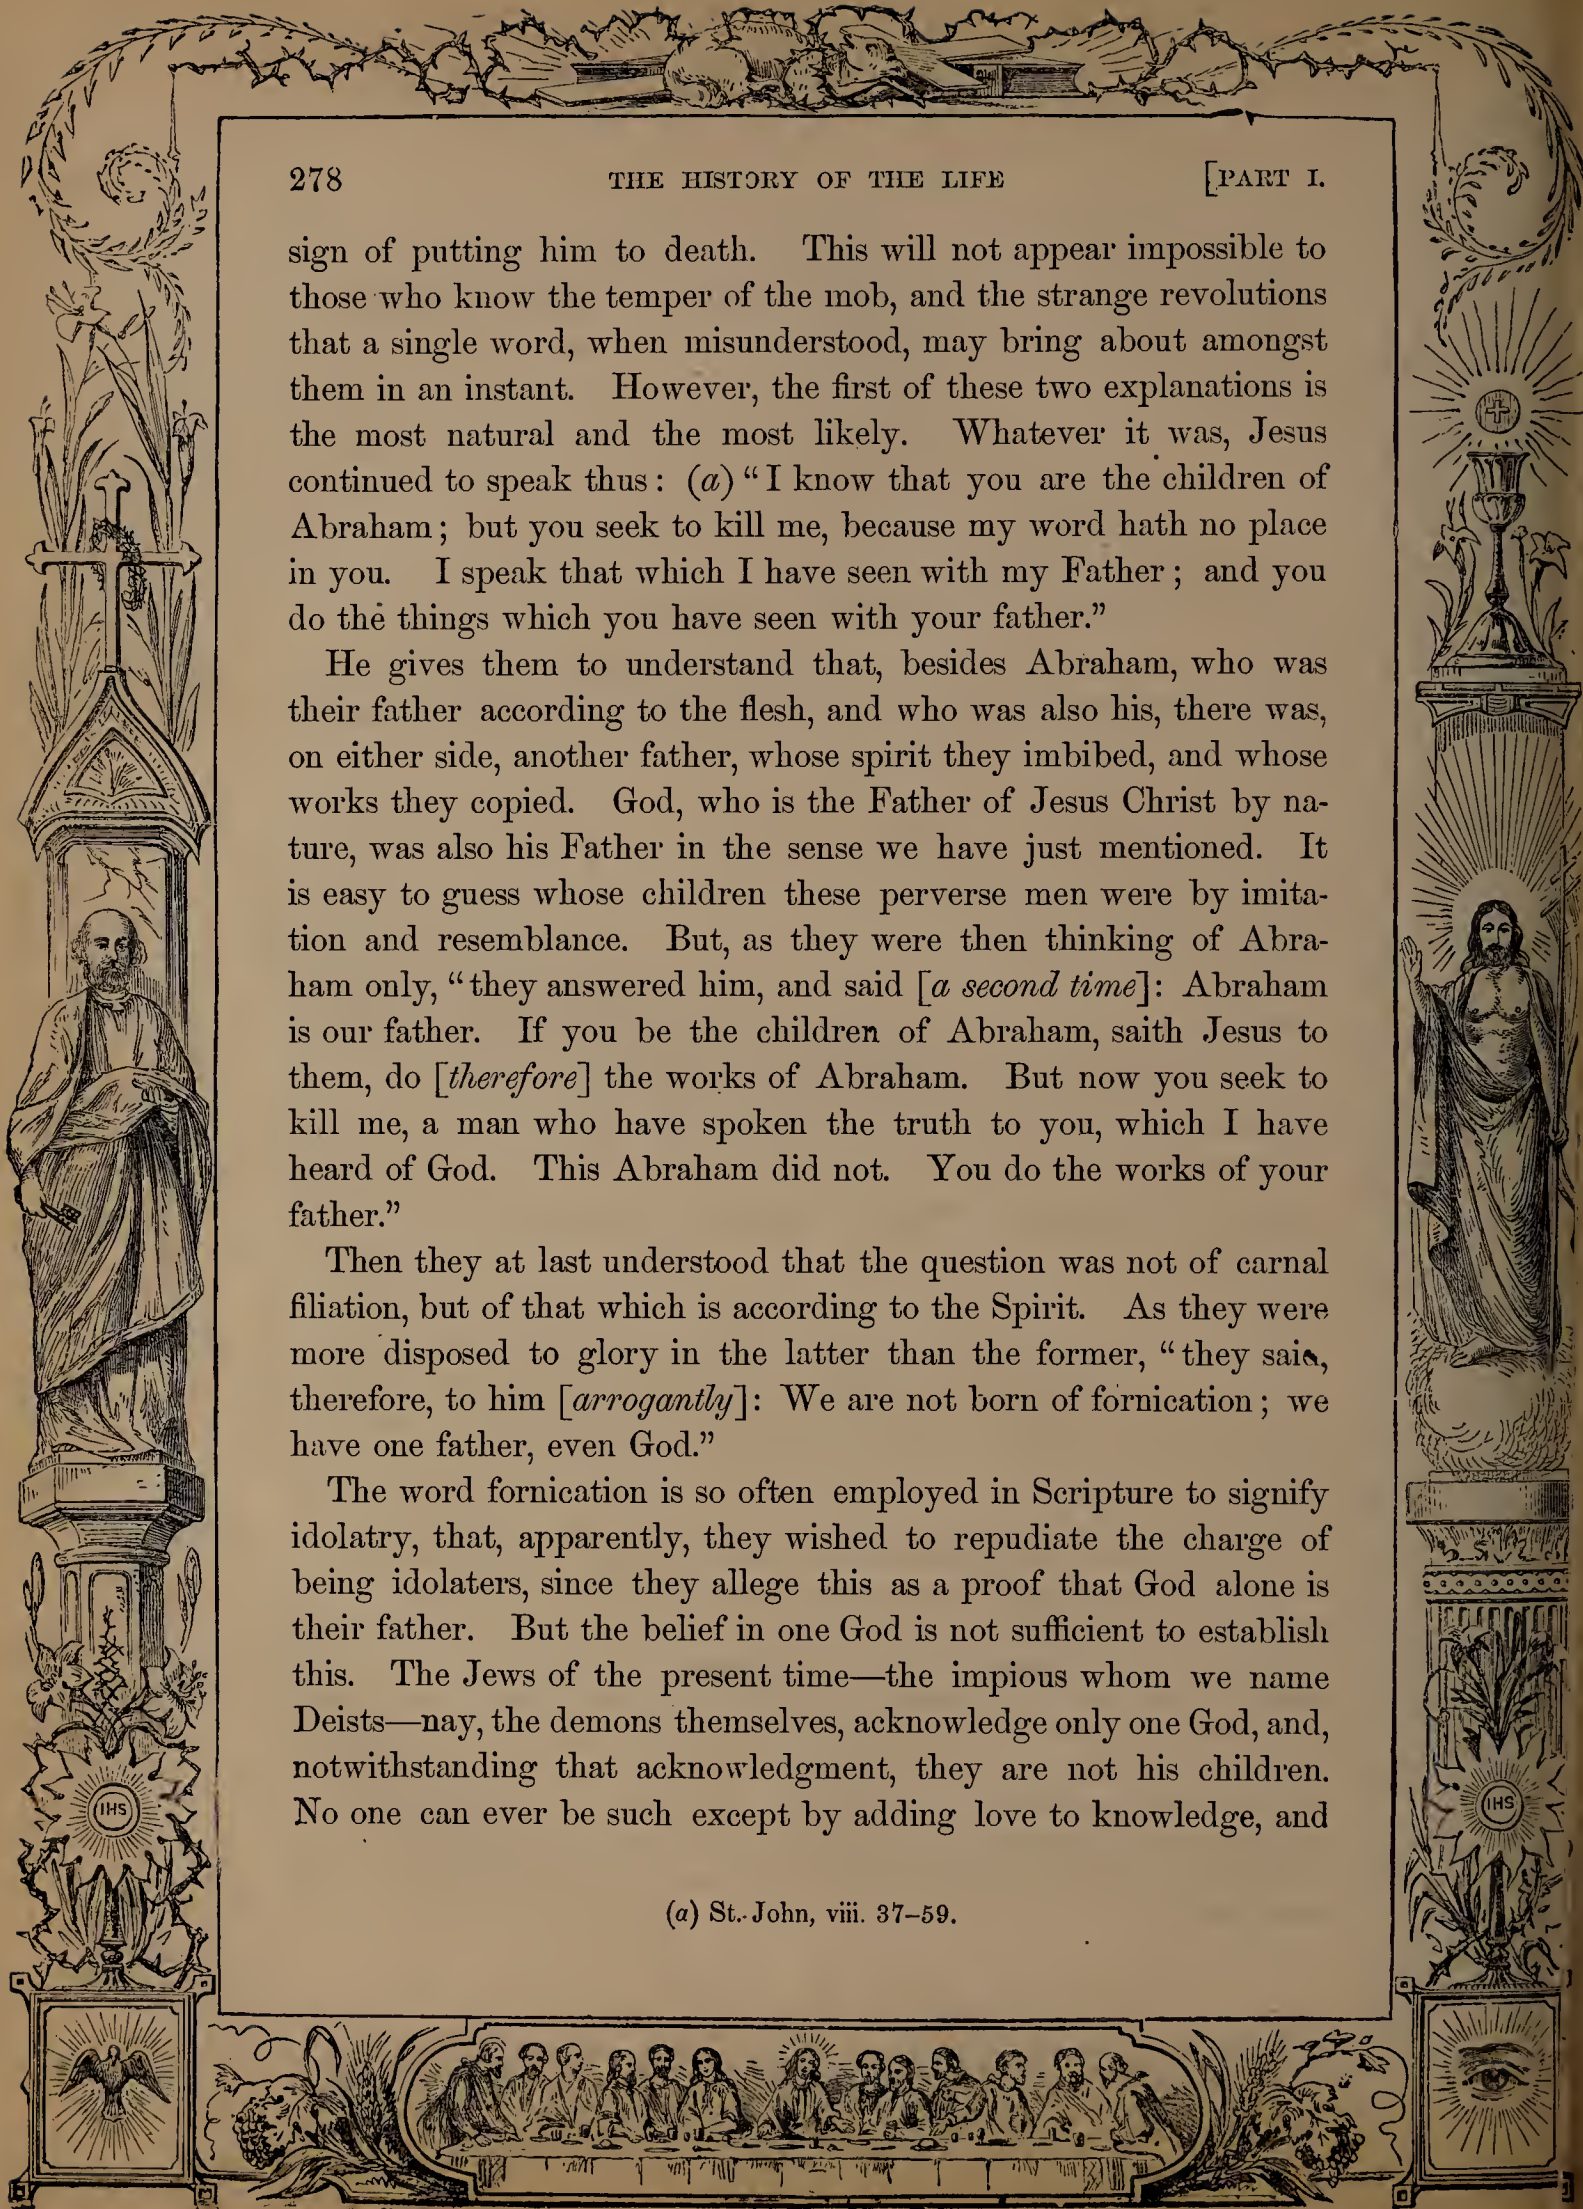 278 THE HISTORY OF THE LIFE [PART I.
sign of putting him to death. This will not appear impossible to
those who know the temper of the mob, and the strange revolutions
that a single word, when misunderstood, may bring about amongst
them in an instant. However, the first of these two explanations is
the most natural and the most likely. Whatever it was, Jesus
continued to speak thus: (a) “I know that you are the children of
Abraham; but you seek to kill me, because my word hath no place
in you. I speak that which I have seen with my Father; and you
do the things which you have seen with your father.”
He gives them to understand that, besides Abraham, who was
their father according to the flesh, and who was also his, there was,
on either side, another father, whose spirit they imbibed, and whose
works they copied. God, who is the Father of Jesus Christ by na-
ture, was also his Father in the sense we have just mentioned. It
is easy to guess whose children these perverse men were by imita-
tion and resemblance. But, as they were then thinking of Abra-
ham only, “they answered him, and said [a second time]: Abraham
is our father. If you be the children of Abraham, saith Jesus to
them, do [therefore] the works of Abraham. But now you seek to
kill me, a man who have spoken the truth to you, which I have
heard of God. This Abraham did not. You do the works of your
father.”
Then they at last understood that the question was not of carnal
filiation, but of that which is according to the Spirit. As they were
more disposed to glory in the latter than the former, “they said,
therefore, to him [arrogantly]: We are not born of fornication; we
have one father, even God.”
The word fornication is so often employed in Scripture to signify
idolatry, that, apparently, they wished to repudiate the charge of
being idolaters, since they allege this as a proof that God alone is
their father. But the belief in one God is not sufficient to establish
this. The Jews of the present time—the impious whom we name
Deists—nay, the demons themselves, acknowledge only one God, and,
notwithstanding that acknowledgment, they are not his children.
No one can ever be such except by adding love to knowledge, and
IHS
IHS
(a) St. John, viii. 37–59.